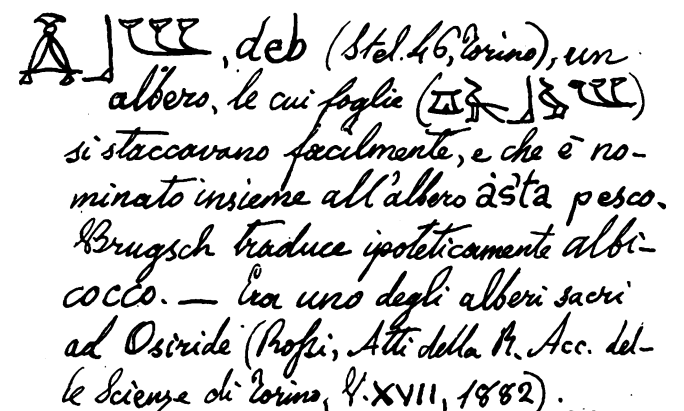 , deb (Stel. 46, Torino), un
albero, le cui foglie ( )
si staccavano facilmente, e che è no-
minato insieme all'albero às'ta pesco.
Brugsch traduce ipoteticamente albi-
cocco. — Era uno degli alberi sacri
ad Osiride (Rossi, Atti della R. Acc. del-
le Scienze di Torino, V. XVII, 1882).